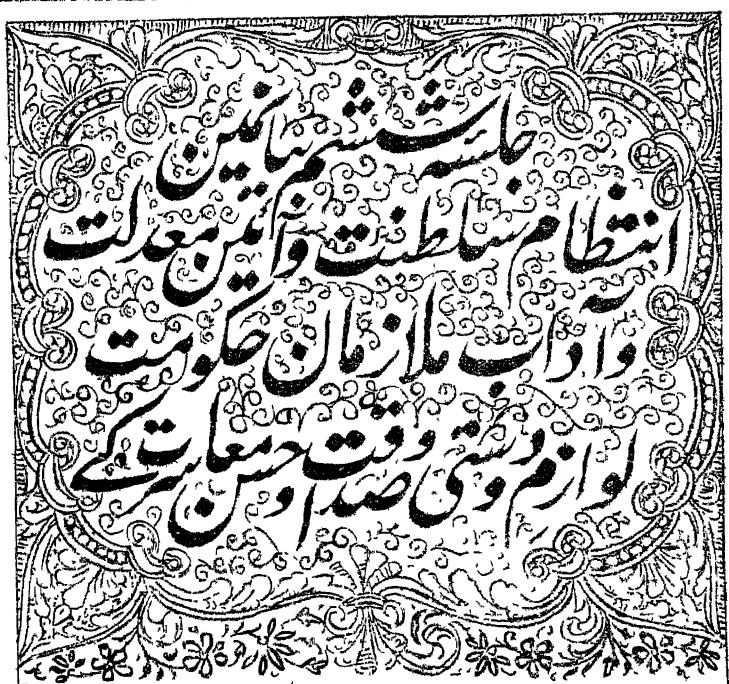 جلسہ ششم بیانمین
انتظام سلطنت وآئین معدلت
وآداب ملازمان حکومت
لوازم دوستی وصداقت اور حسن معاشرت کے